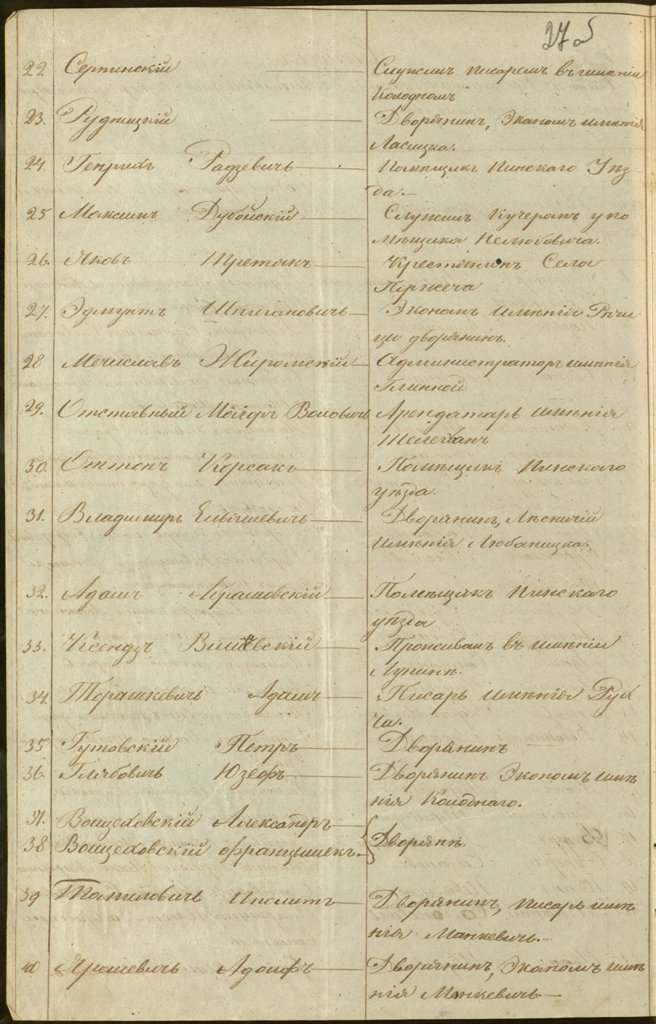 27 об
22 Серпинскій — Служилъ писаремъ въ имѣніи
Колодномъ
23. Рудницкій — Дворянинъ, Экономъ имѣнія
Ласицка.
24. Генрихъ Радзевичъ — Помѣщикъ Пинскаго Уѣз-
да. —
25 Максимъ Дубойскій — Служилъ Кучеромъ у по
мѣщика Нелюбовича.
26. Яковъ Третякъ — Крестьянинъ Села
Поречеча
27. Эдмунтъ — Экономъ имѣнія Рѣчи
цы дворянинъ.
28 Мечиславъ Жиромскій — Администраторъ имѣнія
Глинной
29. Отставный Маіоръ Воловичъ Арендаторъ имѣнія
30. Оттонъ Корсакъ — Помѣщикъ Пинскаго
уѣзда.
31. Владимиръ Ельяшевичъ — Дворянинъ, Лѣсничій
имѣнія Любашицка.
32. Адамъ Абрамовскій — Помѣщикъ Пинскаго
уѣзда
33. Ксендзъ — Проживалъ въ имѣніи
Лунинѣ.
34. Торашкевичъ Адамъ — Писарь имѣнія Дуб
ча.
35 Гутовскій Петръ — Дворянинъ
36. Глѣбовичъ Юзефъ — Дворянинъ Экономъ имѣ
нія Колоднаго.
37. Войцеховскій Александръ —
38 Войцеховскій Францышекъ — Дворяне.
39 Таниловичъ Иполитъ — Дворянинъ, писарь имѣ
нія Манкевичъ. —
40 Ярошевичъ Адольфъ — Дворянинъ, Экономъ имѣ
нія Манкевичъ —